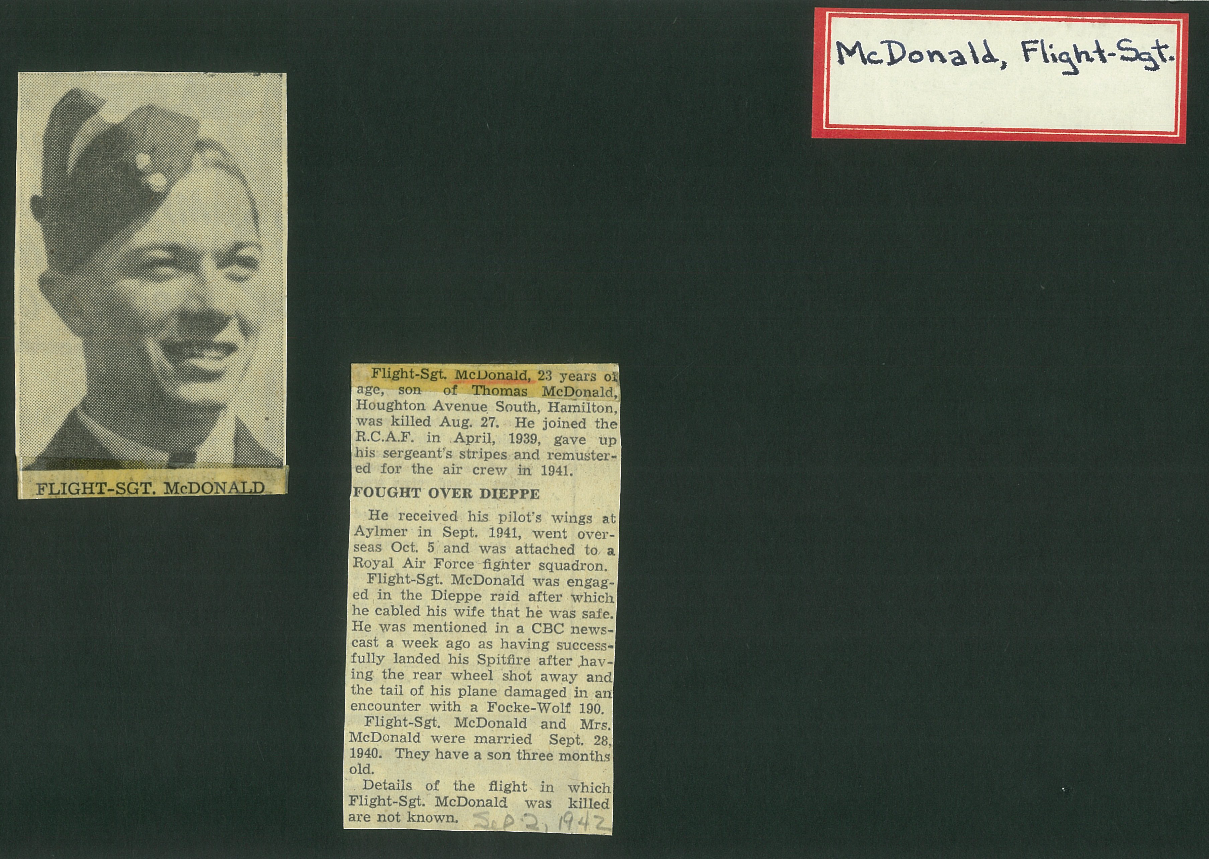 McDonald, Flight-Sgt.
FLIGHT-SGT. McDONALD
Flight-Sgt. McDonald, 23 years of
age, son of Thomas McDonald,
Houghton Avenue South, Hamilton,
was killed Aug. 27. He joined the
R.C.A.F. in April, 1939, gave up
his sergeant's stripes and remuster-
ed for the air crew in 1941.
FOUGHT OVER DIEPPE
He received his pilot's wings at
Aylmer in Sept. 1941, went over-
seas Oct. 5 and was attached to a
Royal Air Force fighter squadron.
Flight-Sgt. McDonald was engag-
ed in the Dieppe raid after which
he cabled his wife that he was safe.
He was mentioned in a CBC news-
cast a week ago as having success-
fully landed his Spitfire after hav-
ing the rear wheel shot away and
the tail of his plane damaged in an
encounter with a Focke-Wolf 190.
Flight-Sgt. McDonald and Mrs.
McDonald were married Sept. 28,
1940. They have a son three months
old.
Details of the flight in which
Flight-Sgt. McDonald was killed
are not known. Sep. 2, 1942